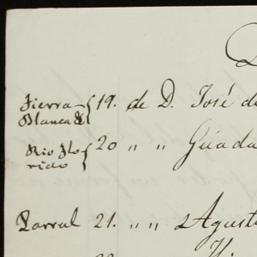 Tierra Blanca { 19. de D. José d
Rio Flo-
rido { 20 " " Guada
Parral 21. " " Agust